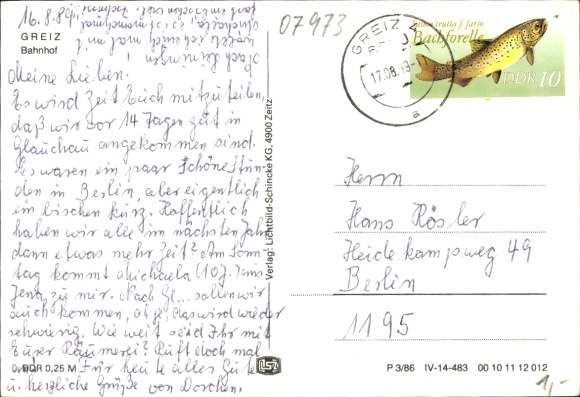 16. 8. 89
GREIZ
Bahnhof
Meine Lieben.
Es wird Zeit Euch mitzuteilen,
daß wir vor 14 Tagen gut in
Glauchau angekommen sind.
Es waren ein paar schöne Stun-
den in Berlin, aber eigentlich
ein bischen kurz. Hoffentlich
haben wir alle im nächsten Jahr
dann etwas mehr Zeit? Am Sonn-
tag kommt Michaela (10J.) aus
Jena, zu mir. Nach wir
auch kommen, das wird wieder
schwierig. Wie weit seid Ihr mit
Eurer Räumerei? Ruft doch mal
an. Für heute alles Gute
u. herzliche Grüße von Dorchen.
DDR 0,25 M
Verlag: Lichtbild-Schincke KG, 4900 Zeitz
07973
GREIZ
17.08.89
a
Salmo trutta f. fario
Bachforelle
DDR 10
Herrn
Hans Rösler
Heidekampweg 49
Berlin
1195
P 3/86 IV-14-483 00 10 11 12 012
1,-